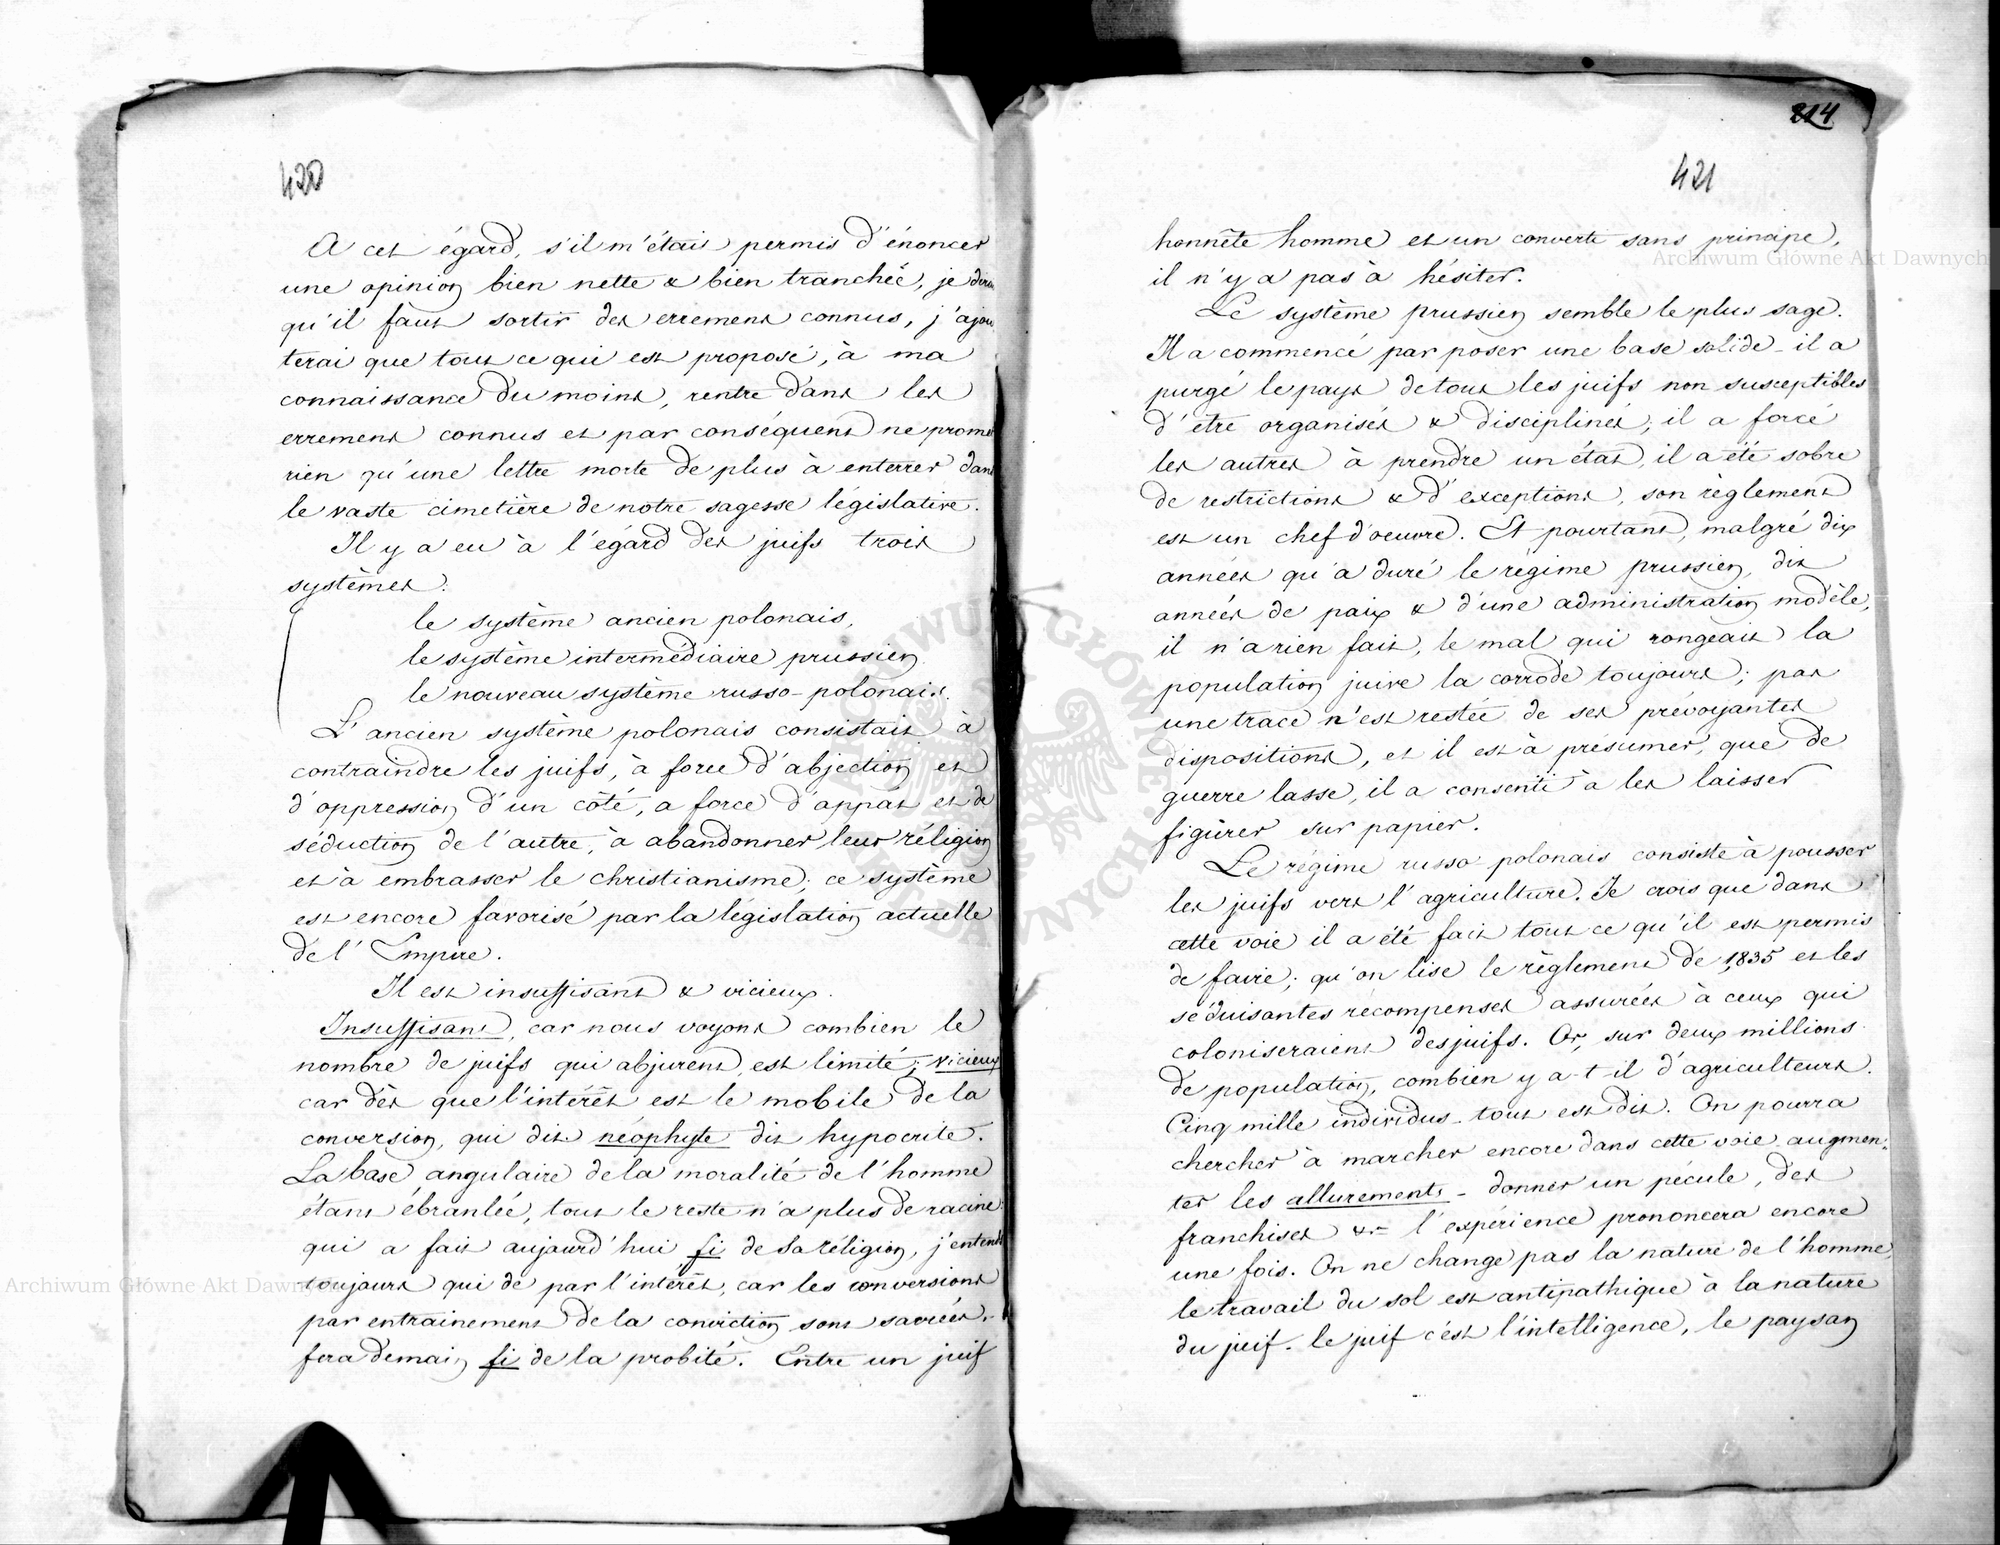 420
A cet égard, s'il m'était permis d'énoncer
une opinion bien nette & bien tranchée, je dirai
qu'il faut sortir des errements connus, j'ajou
terai que tout ce qui est proposé, à ma
connaissance du moins, rentre dans les
errements connus et par conséquent ne promet
rien qu'une lettre morte de plus à enterrer dans
le vaste cimetière de notre sagesse législative.
Il y a eu à l'égard des juifs trois
systèmes:
le système ancien polonais,
le système intermédiaire prussien
le nouveau système russo-polonais.
L'ancien système polonais consistait à
contraindre les juifs, à force d'abjection et
d'oppression d'un côté, a force d'appât et de
séduction de l'autre, à abandonner leur réligion
et à embrasser le christianisme; ce système
est encore favorisé par la législation actuelle
de l'Empire.
Il est insuffisant & vicieux.
Insuffisant, car nous voyons combien le
nombre de juifs qui abjurent, est limité; vicieux
car dès que l'intérêt est le mobile de la
conversion, qui dit néophyte dit hypocrite.
La base angulaire de la moralité de l'homme
étant ébranlée, tout le reste n'a plus de racine
qui a fait aujourd'hui fi de sa réligion, j'entends
toujours qui de par l'intérêt, car les conversions
par entrainement de la conviction sont sacrées,
fera demain fi de la probité. Entre un juif
814
421
honnête homme et un converti sans principe,
il n'y a pas à hésiter.
Le système prussien semble le plus sage.
Il a commencé par poser une base solide - il a
purgé le pays de tous les juifs non susceptibles
d'être organisés & disciplinés; il a forcé
les autres à prendre un état, il a été sobre
de restrictions & d'exceptions, son règlement
est un chef d'oeuvre. Et pourtant, malgré dix
années qu'a duré le régime prussien, dix
années de paix & d'une administration modèle,
il n'a rien fait, le mal qui rongeait la
population juive la corrode toujours; pas
une trace n'est restée de ses prévoyantes
dispositions, et il est à présumer, que de
guerre lasse, il a consenti à les laisser
figurer sur papier.
Le régime russo-polonais consiste à pousser
les juifs vers l'agriculture. Je crois que dans
cette voie il a été fait tout ce qu'il est permis
de faire; qu'on lise le règlement de 1835 et les
séduisantes récompenses assurées à ceux qui
coloniseraient des juifs. Or, sur deux millions
de population, combien y a-t-il d'agriculteurs.
Cinq mille individus - tout est dit. On pourra
chercher à marcher encore dans cette voie augmen
ter les allurements - donner un pécule, des
franchises &c - l'expérience prononcera encore
une fois. On ne change pas la nature de l'homme
le travail du sol est antipathique à la nature
du juif. le juif c'est l'intelligence, le paysan
Archiwum Główne Akt Dawnych
Archiwum Główne Akt Dawnych